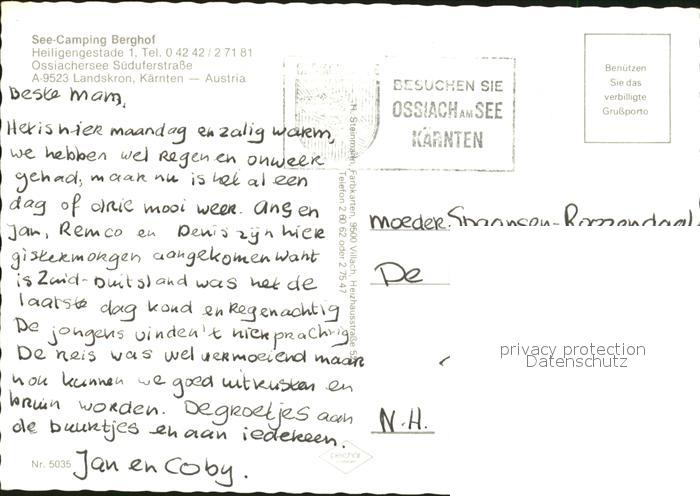 See-Camping Berghof
Heiligengestade 1, Tel. 0 42 42 / 2 71 81
Ossiachersee Süduferstraße
A-9523 Landskron, Kärnten — Austria
Beste Mam,
Het is hier maandag en zalig warm,
we hebben wel regen en onweer
gehad, maar nu is het al een
dag of drie mooi weer. Ans en
Jan, Remco en Denis zijn hier
gistermorgen aangekomen want
is Zuid-Duitsland was het de
laatste dag koud en Regenachtig
De jongens vinden 't hier prachtig
De reis was wel vermoeiend maar
nou kunnen we goed uitrusten en
bruin worden. De groetjes aan
de buurtjes en aan iedereen.
Jan en Coby.
Nr. 5035
H. Steinmann, Farbkarten, 9500 Villach, Heizhausstraße 5
Telefon 2 80 62 oder 2 75 47
BESUCHEN SIE
OSSIACH AM SEE
KÄRNTEN
Benützen
Sie das
verbilligte
Grußporto
Moeder. Spaansen-Roozendaal
De
N.H.
privacy protection
Datenschutz